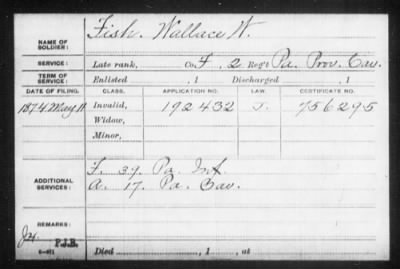 NAME OF SOLDIER: Fish. Wallace W.
SERVICE: Late rank, Co. F, 2 Reg't Pa. Prov. Cav.
TERM OF SERVICE: Enlisted , 1 Discharged , 1
DATE OF FILING. CLASS. APPLICATION NO. LAW. CERTIFICATE NO.
1874. May. 11 Invalid, 192432 J. 756295
Widow,
Minor,
ADDITIONAL SERVICES: F. 39. Pa. Inf.
A. 17. Pa. Cav.
REMARKS:
P.J.B.
Died , 1 , at